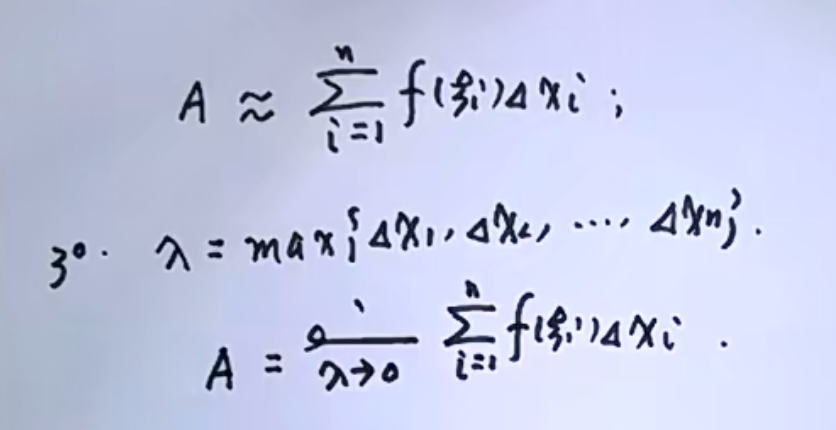 A ≈ ∑_{i=1}^{n} f(ξi)Δxi ;
3°. λ = max{Δx₁, Δx₂, ..., Δxn}.
A = lim_{λ→0} ∑_{i=1}^{n} f(ξi)Δxi .